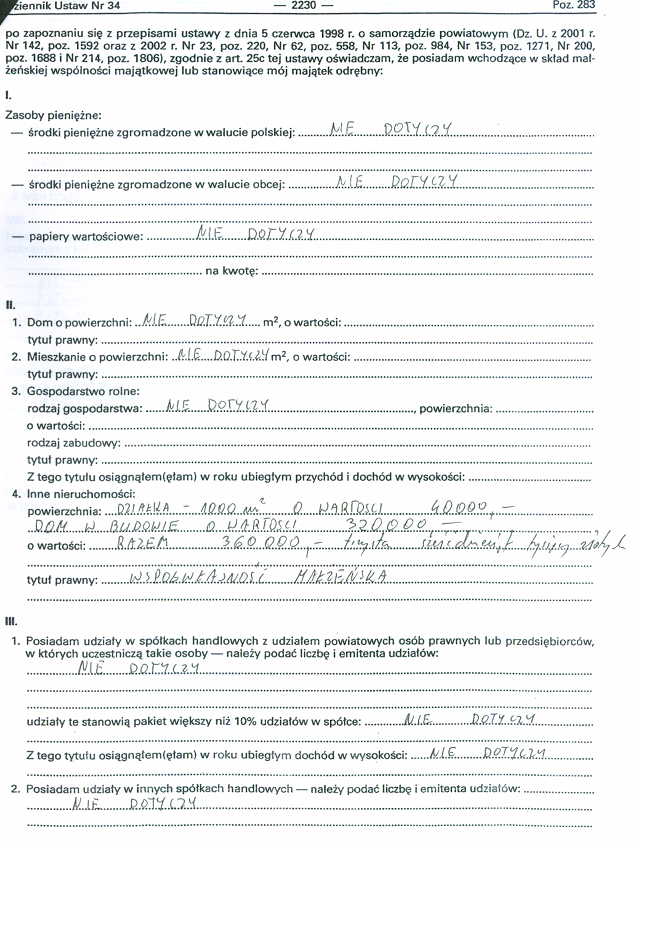 ziennik Ustaw Nr 34 — 2230 — Poz. 283
po zapoznaniu się z przepisami ustawy z dnia 5 czerwca 1998 r. o samorządzie powiatowym (Dz. U. z 2001 r.
Nr 142, poz. 1592 oraz z 2002 r. Nr 23, poz. 220, Nr 62, poz. 558, Nr 113, poz. 984, Nr 153, poz. 1271, Nr 200,
poz. 1688 i Nr 214, poz. 1806), zgodnie z art. 25c tej ustawy oświadczam, że posiadam wchodzące w skład mał-
żeńskiej wspólności majątkowej lub stanowiące mój majątek odrębny:
I.
Zasoby pieniężne:
— środki pieniężne zgromadzone w walucie polskiej: NIE DOTYCZY
— środki pieniężne zgromadzone w walucie obcej: NIE DOTYCZY
— papiery wartościowe: NIE DOTYCZY
na kwotę:
II.
1. Dom o powierzchni: NIE DOTYCZY m², o wartości:
tytuł prawny:
2. Mieszkanie o powierzchni: NIE DOTYCZY m², o wartości:
tytuł prawny:
3. Gospodarstwo rolne:
rodzaj gospodarstwa: NIE DOTYCZY, powierzchnia:
o wartości:
rodzaj zabudowy:
tytuł prawny:
Z tego tytułu osiągnąłem(ęłam) w roku ubiegłym przychód i dochód w wysokości:
4. Inne nieruchomości:
powierzchnia: DZIAŁKA - 1000 m² O WARTOSCI 40000,—
DOM W BUDOWIE O WARTOSCI 320000,—
o wartości: RAZEM 360 000,— trzysta sześćdziesiąt tysięcy złotych
tytuł prawny: WSPÓŁWŁASNOŚĆ MAŁŻEŃSKA
III.
1. Posiadam udziały w spółkach handlowych z udziałem powiatowych osób prawnych lub przedsiębiorców,
w których uczestniczą takie osoby — należy podać liczbę i emitenta udziałów:
NIE DOTYCZY
udziały te stanowią pakiet większy niż 10% udziałów w spółce: NIE DOTYCZY
Z tego tytułu osiągnąłem(ęłam) w roku ubiegłym dochód w wysokości: NIE DOTYCZY
2. Posiadam udziały w innych spółkach handlowych — należy podać liczbę i emitenta udziałów:
NIE DOTYCZY